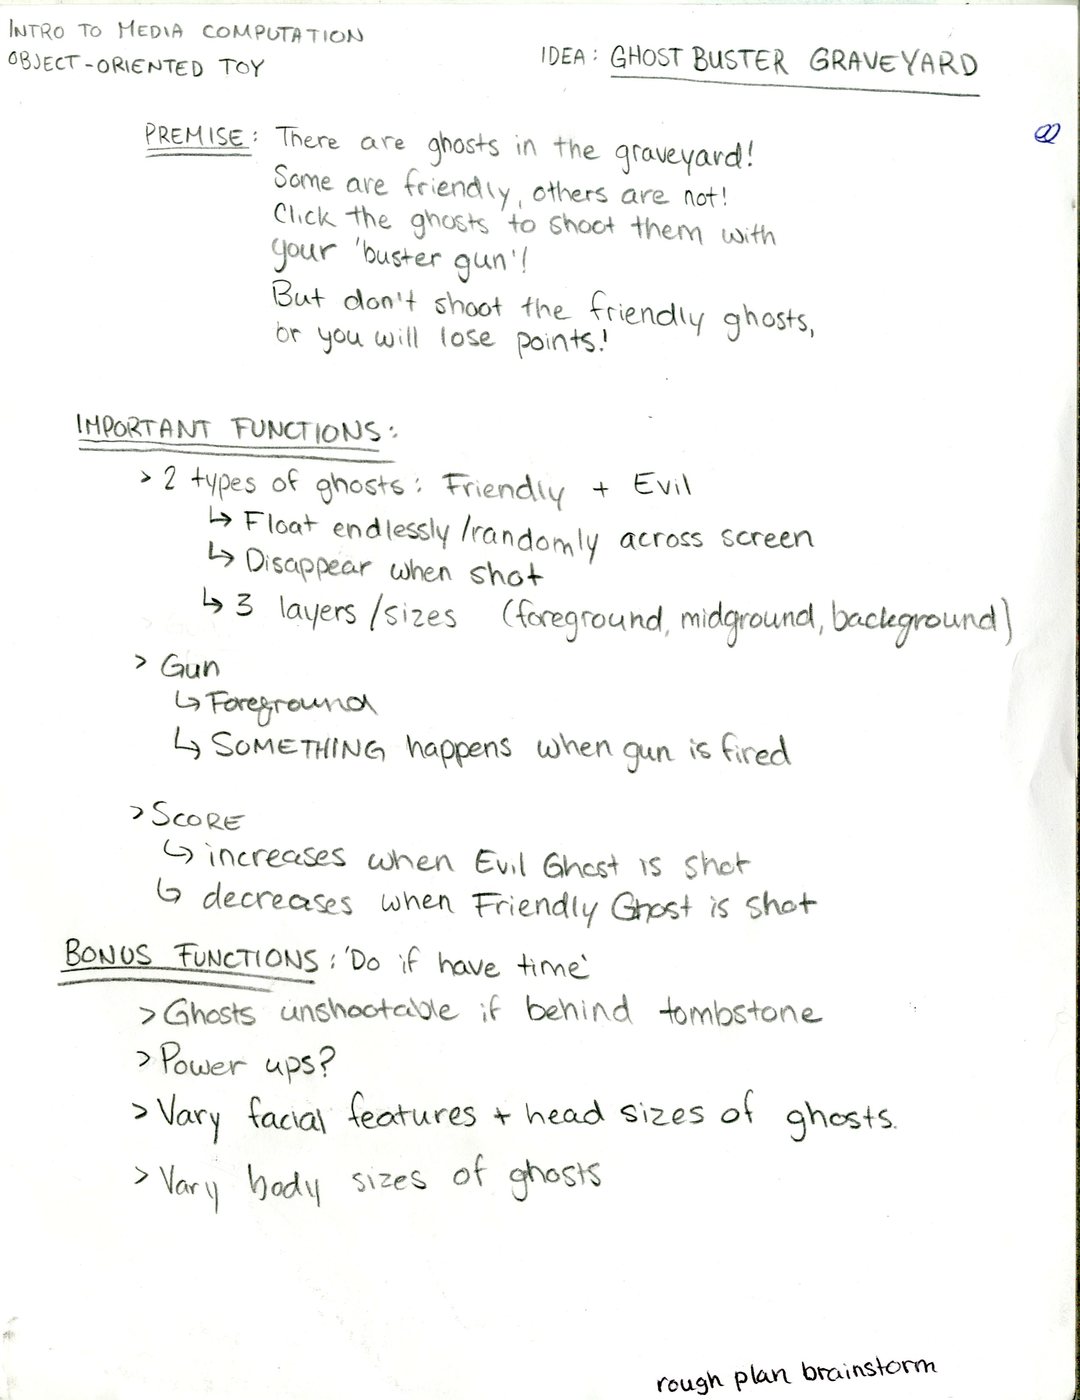 INTRO TO MEDIA COMPUTATION
OBJECT-ORIENTED TOY
IDEA: GHOST BUSTER GRAVEYARD
PREMISE: There are ghosts in the graveyard!
Some are friendly, others are not!
Click the ghosts to shoot them with
your 'buster gun'!
But don't shoot the friendly ghosts,
or you will lose points!
IMPORTANT FUNCTIONS:
> 2 types of ghosts: Friendly + Evil
↳ Float endlessly/randomly across screen
↳ Disappear when shot
↳ 3 layers/sizes (foreground, midground, background)
> Gun
↳ Foreground
↳ SOMETHING happens when gun is fired
> SCORE
↳ increases when Evil Ghost is shot
↳ decreases when Friendly Ghost is shot
BONUS FUNCTIONS: 'Do if have time'
> Ghosts unshootable if behind tombstone
> Power ups?
> Vary facial features + head sizes of ghosts.
> Vary body sizes of ghosts
rough plan brainstorm